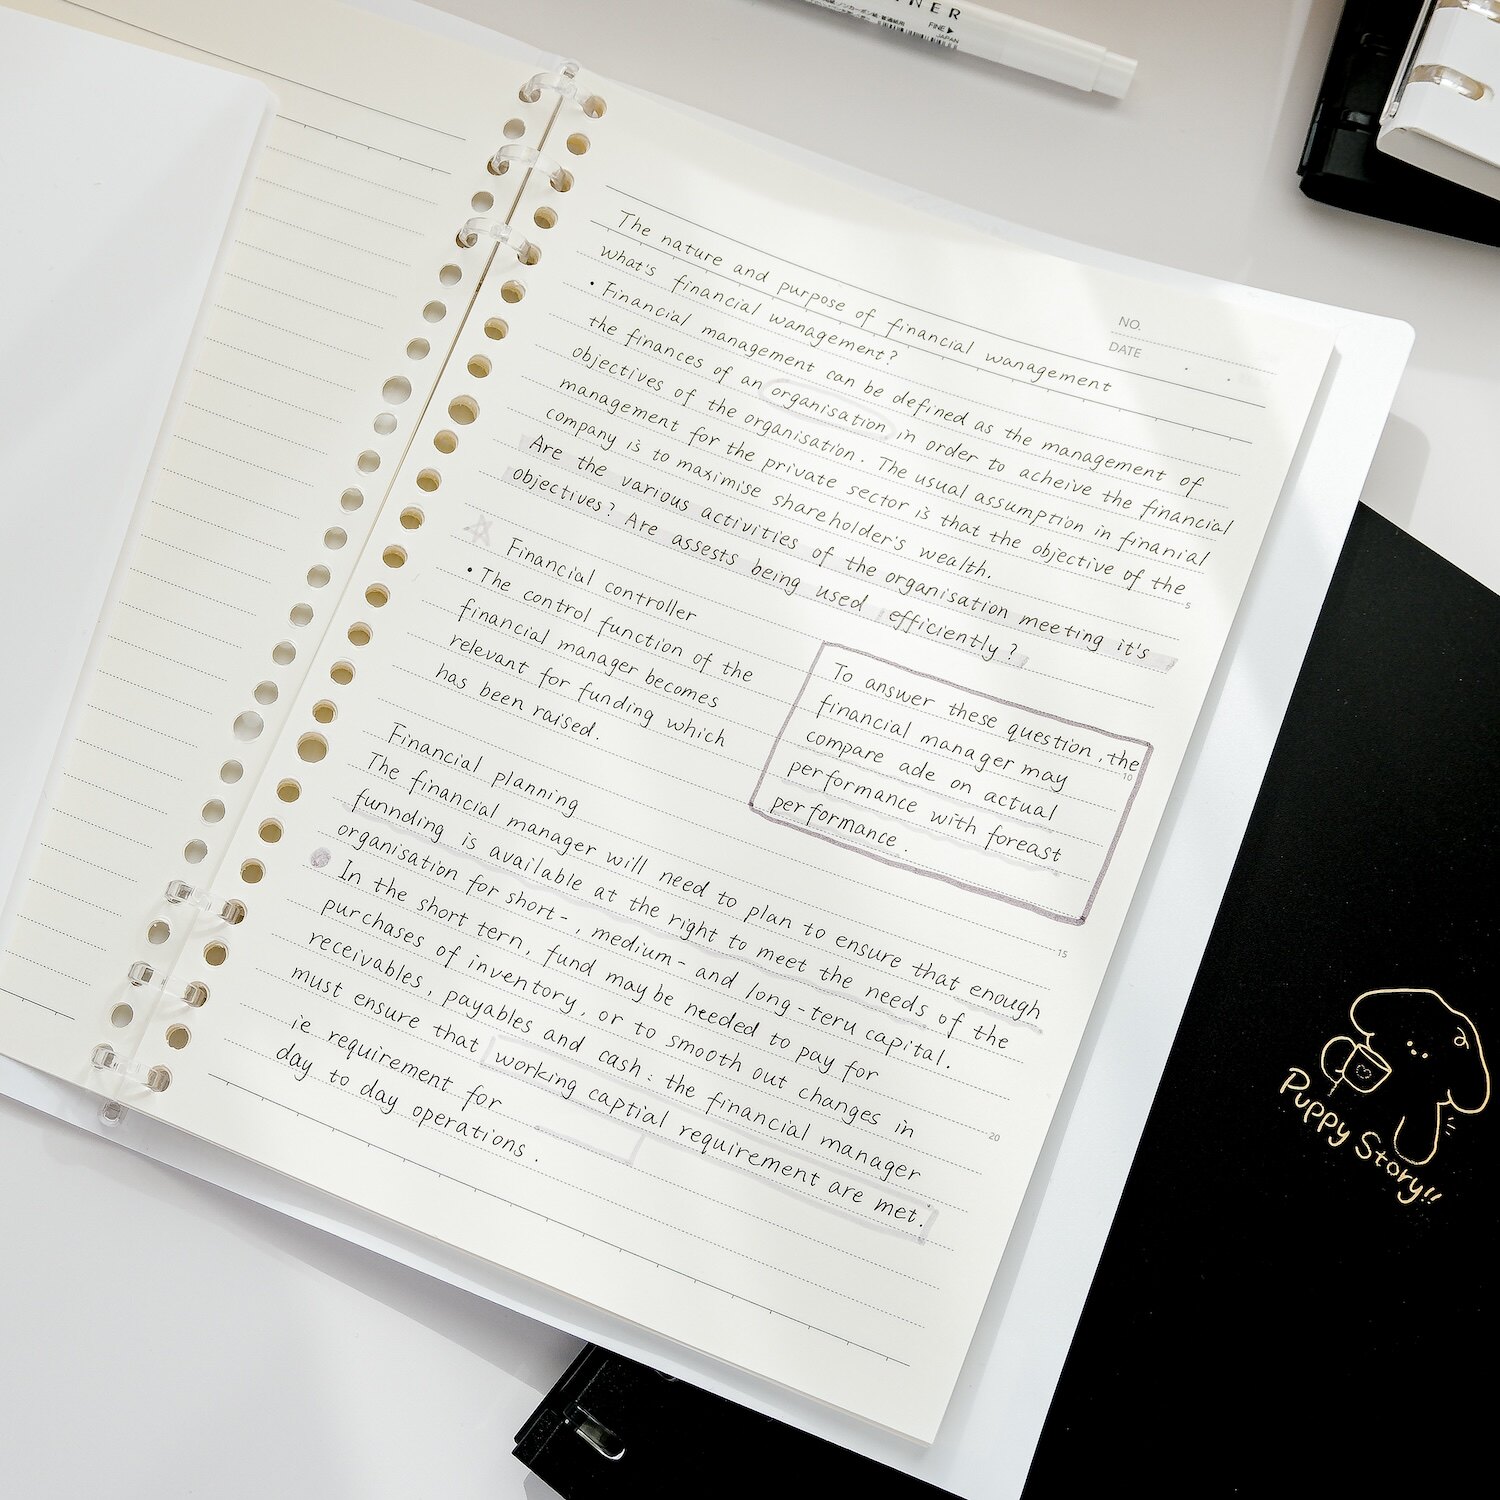 NER
FINE
JAPAN
NO.
DATE
The nature and purpose of financial wanagement
what's financial wanagement?
• Financial management can be defined as the management of
the finances of an organisation in order to acheive the financial
objectives of the organisation. The usual assumption in finanial
management for the private sector is that the objective of the
company is to maximise shareholder's wealth.
Are the various activities of the organisation meeting it's
objectives? Are assests being used efficiently?
Financial controller
• The control function of the
financial manager becomes
relevant for funding which
has been raised.
To answer these question, the
financial manager may
compare ade on actual
performance with foreast
performance.
Financial planning
The financial manager will need to plan to ensure that enough
funnding is available at the right to meet the needs of the
organisation for short-, medium- and long-teru capital.
In the short tern, fund may be needed to pay for
purchases of inventory, or to smooth out changes in
receivables, payables and cash: the financial manager
must ensure that working captial requirement are met.
ie requirement for
day to day operations.
5
10
15
20
Puppy Story!!